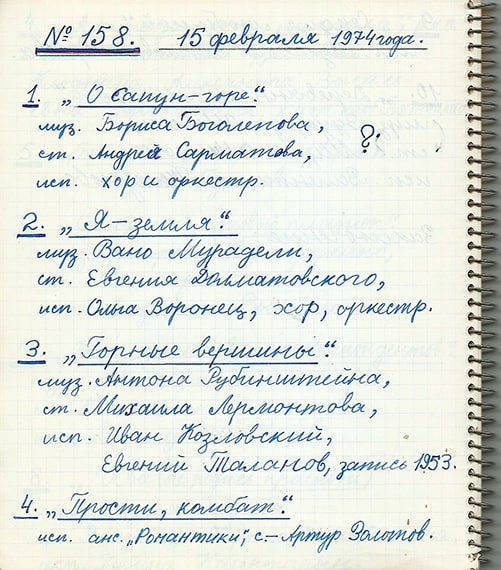 № 158. 15 февраля 1974 года.
1. „О Сапун-горе“.
муз. Бориса Боголепова,
ст. Андрея Сарматова, ?.
исп. хор и оркестр.
2. „Я – земля“.
муз. Вано Мурадели,
ст. Евгения Долматовского,
исп. Ольга Воронец, хор, оркестр.
3. „Горные вершины“.
муз. Антона Рубинштейна,
ст. Михаила Лермонтова,
исп. Иван Козловский,
Евгений Таланов, запись 1953.
4. „Прости, комбат“.
исп. анс. „Романтики“, с. – Артур Золотов.